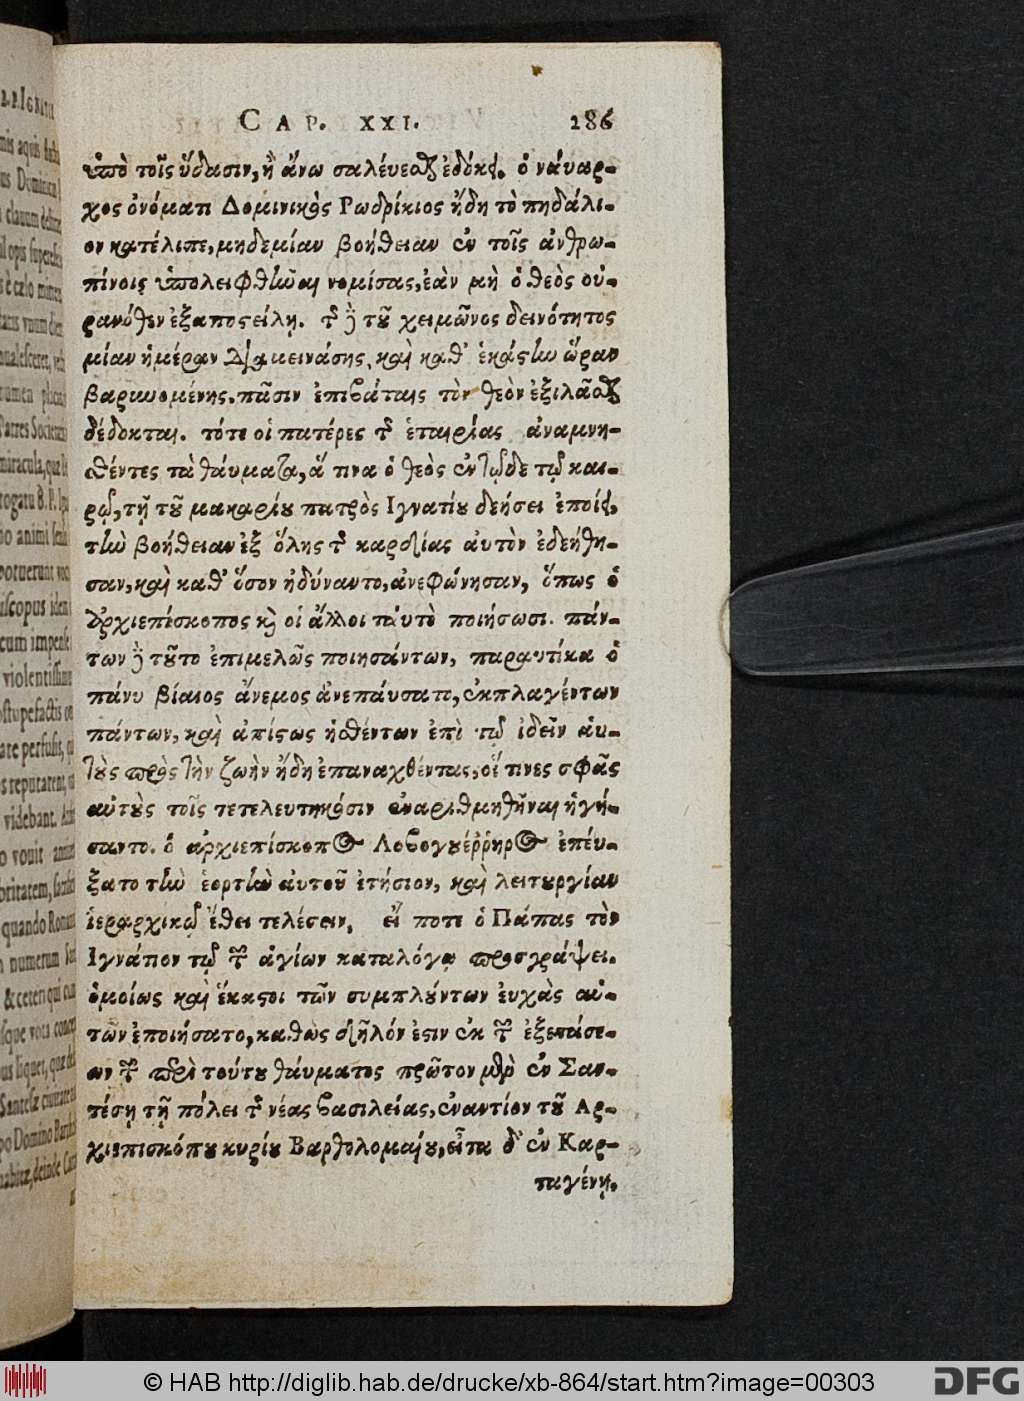 CAP. XXI. 286
ὑπὸ τοῖς ὕδασιν, ἢ ἄνω σαλέυεσθαι ἐδόκει. ὁ νάυαρ-
χος ὀνόματι Δομινικὸς Ρωδρίκιος ἤδη τὸ πηδάλι-
ον κατέλιπε, μηδεμίαν βοήθειαν ἐν τοῖς ἀνθρω-
πίνοις ὑπολειφθῆναι νομίσας, ἐὰν μὴ ὁ θεὸς οὐ-
ρανόθεν ἐξαποστείλῃ. τῆς δὲ τοῦ χειμῶνος δεινότητος
μίαν ἡμέραν διαμεινάσης, καὶ καθ' ἑκάστην ὥραν
βαρυνομένης. πᾶσιν ἐπιβάταις τὸν θεὸν ἐξιλᾶσθαι
δέδοκται. τότε οἱ πατέρες τῆς ἑταιρίας ἀναμνη-
σθέντες τὰ θάυματα, ἅ τινα ὁ θεὸς ἐν τῷδε τῷ και-
ρῷ, τῇ τοῦ μακαρίου πατρὸς Ιγνατίου δεήσει ἐποίει,
τὴν βοήθειαν ἐξ ὅλης τῆς καρδίας αὐτὸν ἐδεήθη-
σαν, καὶ καθ' ὅσον ἠδύναντο, ἀνεφώνησαν, ὅπως ὁ
ἀρχιεπίσκοπος καὶ οἱ ἄλλοι ταὐτὸ ποιήσωσι. πάν-
των δὲ τοῦτο ἐπιμελῶς ποιησάντων, παραυτίκα ὁ
πάνυ βίαιος ἄνεμος ἀνεπάυσατο, ἐκπλαγέντων
πάντων, καὶ ἀπίστως ἡσθέντων ἐπὶ τῷ ἰδεῖν ἁυ-
τοὺς πρὸς τὴν ζωὴν ἤδη ἐπαναχθέντας, οἵ τινες σφᾶς
αὐτοὺς τοῖς τετελευτηκόσιν ἐναριθμηθῆναι ἡγή-
σαντο. ὁ ἀρχιεπίσκοπος Λοβογουέῤῥηρος ἐπέυ-
ξατο τὴν ἑορτὴν αὐτοῦ ἐτήσιον, καὶ λειτυργίαν
ἱεραρχικῷ ἔθει τελέσειν, εἴ ποτε ὁ Πάπας τὸν
Ιγνάτιον τῷ τῶν ἁγίων καταλόγῳ προσγράψει.
ὁμοίως καὶ ἕκαστοι τῶν συμπλούντων ἐυχὰς αὐ-
τῶν ἐποιήσατο, καθὼς δῆλόν ἐστιν ἐκ τῶν ἐξετάσε-
ων τῶν περὶ τούτου θάυματος πρῶτον μὲν ἐν Σαν-
τέσῃ τῇ πόλει τῆς νέας βασιλείας, ἐναντίον τοῦ Αρ-
χιεπισκόπου κυρίου Βαρθολομαίου, εἶτα δ' ἐν Καρ-
ταγένῃ,
© HAB http://diglib.hab.de/drucke/xb-864/start.htm?image=00303
DFG